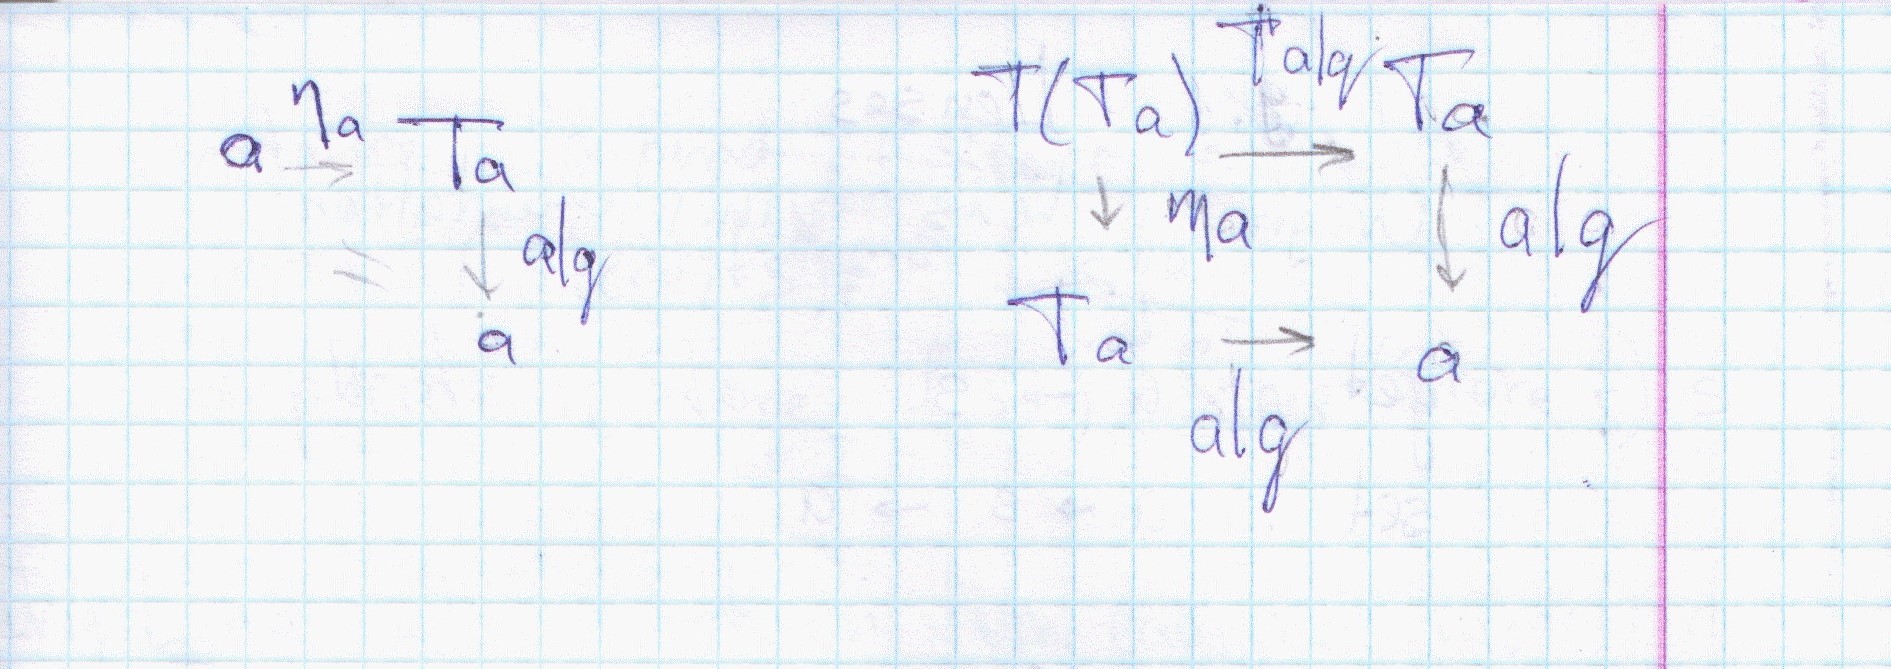 a → ηa Ta
= ↓ alg
a
T(Ta) Talg → Ta
↓ ma ↓ alg
Ta → a
alg